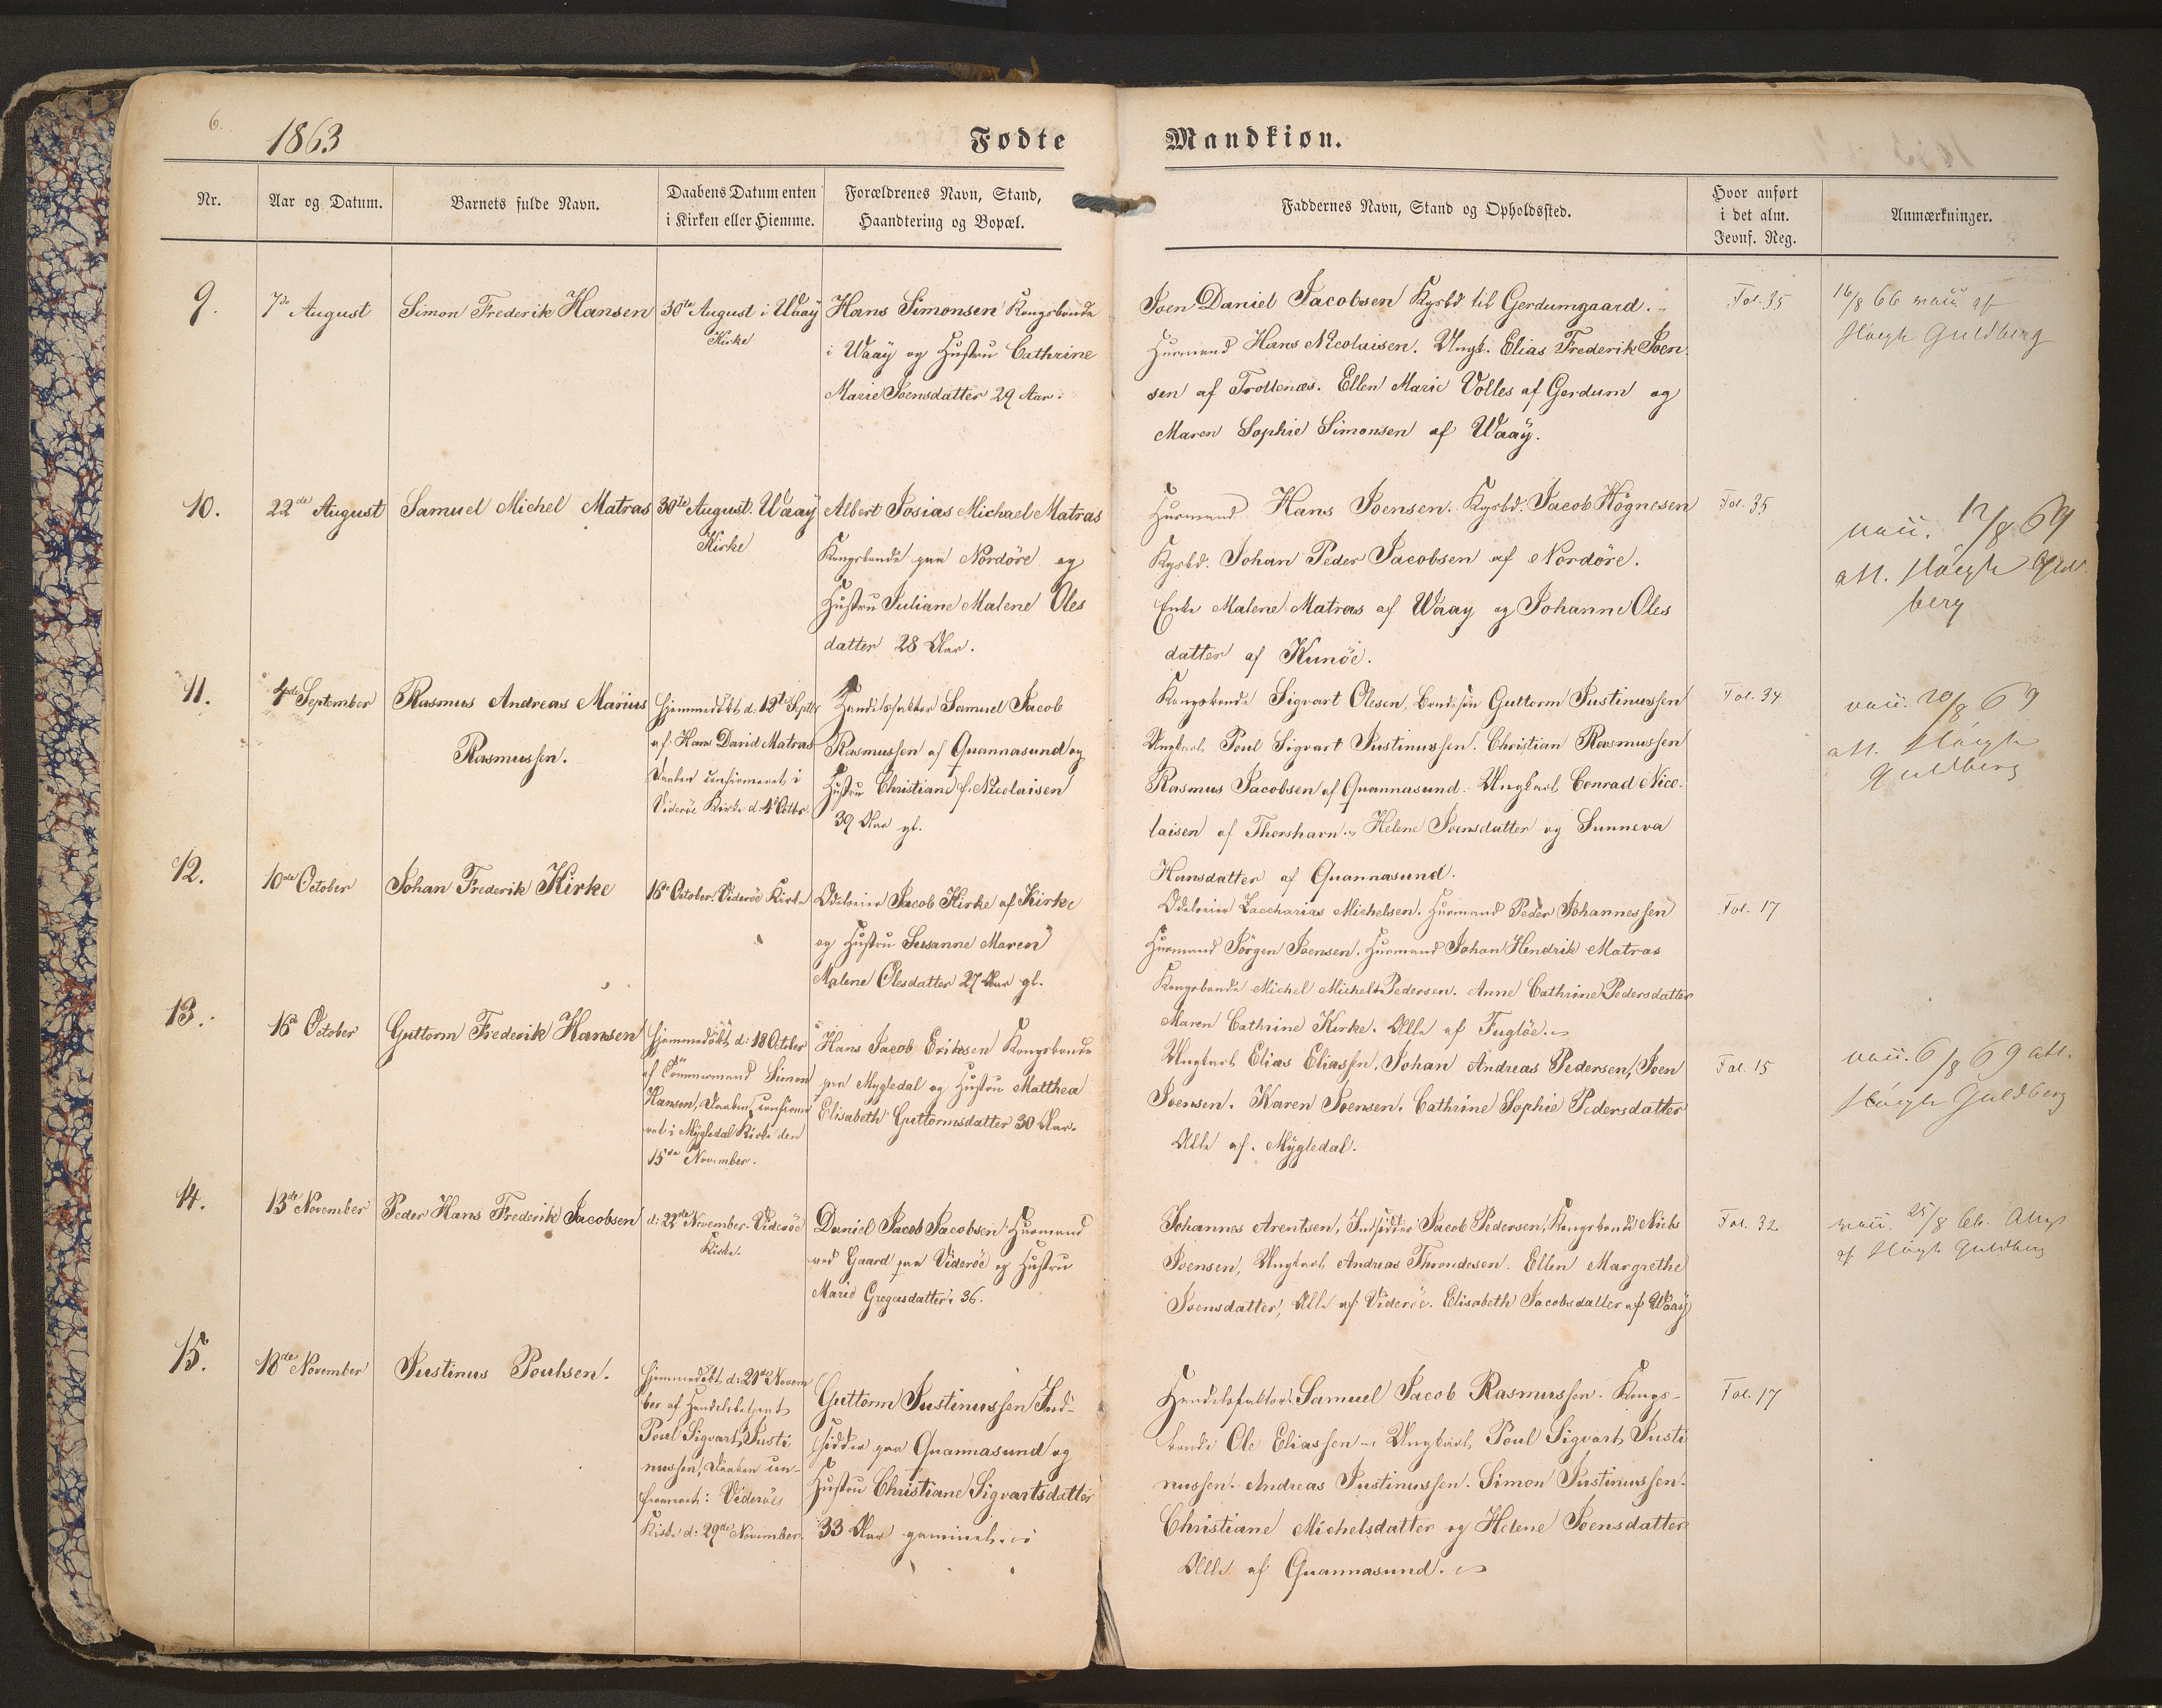 6.
1863
Fødte
Mandkiøn.
Nr.
Aar og Datum.
Barnets fulde Navn.
Daabens Datum enten
i Kirken eller Hiemme.
Forældrenes Navn, Stand,
Haandtering og Bopæl.
Faddernes Navn, Stand og Opholdssted.
Hvor anført
i det alm.
Jevnf. Reg.
Anmærkninger.
9.
7de August
Simon Frederik Hansen
30te August i Waaÿ
Kirke
Hans Simonsen Kongsbonde
i Waaÿ og Hustru Cathrine
Marie Joensdatter 29 Aar.
Joen Daniel Jacobsen Kgsbd til Gerdumgaard.
Huusmand Hans Nicolaisen. Ungk. Elias Frederik Joen
sen af Trollenæs. Ellen Marie Volles af Gerdum og
Maren Sophie Simonsen af Waaÿ.
Fol. 35
16/8 66 vacc af
Høegh Guldberg
10.
22de August
Samuel Michel Matras
30te August. Waaÿ
Kirke
Albert Josias Michael Matras
Kongsbonde paa Nordöre og
Hustru Juliane Malene Oles
datter 28 Aar.
Huusmand Hans Joensen. Kgsbd. Jacob Högnesen
Kgsbd. Johan Peder Jacobsen af Nordöre.
Enke Malene Matras af Waay og Johanne Oles
datter af Kunöe.
Fol. 35
vacc. 12/8 69
att. Høegh Guld
berg
11.
4de September
Rasmus Andreas Marius
Rasmussen.
Hjemmedøbt d: 12te Septbr
af Hans David Matras
Daaben confirmeret i
Videröe Kirke d. 4de Octbr.
Handelsfaktor Samuel Jacob
Rasmussen af Quannasund og
Hustru Christiane f. Nicolaisen
39 Aar gl.
Kongsbonde Sigvart Olesen, Bondesøn Guttorm Justinussen
Ungkarl Poul Sigvart Justinussen. Christian Rasmussen
Rasmus Jacobsen af Quannasund. Ungkarl Conrad Nico-
laisen af Thorshavn. Helene Joensdatter og Sunneva
Hansdatter af Quannasund.
Fol. 34
vacc. 20/8 69
att. Høegh
Guldberg
12.
10de October
Johan Frederik Kirke
18de October. Videröe Kirke
Odelseier Jacob Kirke af Kirke
og Hustru Susanne Maren
Malene Olesdatter 27 Aar gl.
Odelseier Zaccharias Michelsen. Huusmand Peder Johannessen
Huusmand Jörgen Joensen. Huusmand Johan Hendrik Matras
Kongsbonde Michel Michel Pedersen. Anne Cathrine Pedersdatter
Maren Cathrine Kirke. Alle af Fuglöe.
Fol. 17
13.
16de October
Guttorm Frederik Hansen
Hjemmedøbt d: 18 Octbr
af Tömmermand Simon
Hansen, Daaben confirme
ret i Mÿgledal Kirke den
15de November.
Hans Jacob Eriksen Kongsbonde
paa Mygledal og Hustru Matthea
Elisabeth Guttormsdatter 30 Aar.
Ungkarl Elias Eliassen, Johan Andreas Pedersen, Joen
Joensen. Karen Joensen. Cathrine Sophie Pedersdatter
Alle af Mÿgledal.
Fol. 15
vacc. 6/8 69 att.
Høegh Guldberg
14.
13de November
Peder Hans Frederik Jacobsen
d: 22de November. Viderøe
Kirke.
Daniel Jacob Jacobsen Huusmand
ved Gaard paa Viderøe og Hustru
Marie Gregersdatter 36.
Johannes Arentsen, Indsidder Jacob Pedersen, Kongsbonde Niels
Joensen, Ungkarl Andreas Throndesen. Ellen Margrethe
Joensdatter, Alle af Viderøe. Elisabeth Jacobsdatter af Waaÿ
Fol. 32
vacc. 25/8 66.
af Høegh Guldberg
15.
18de November
Justinus Poulsen.
Hjemmedøbt d: 20de Novem
ber af Handelsbetjent
Poul Sigvart Justi
nussen, Daaben con-
firmeret: Viderøes
Kirke d: 29de November.
Guttorm Justinussen Ind-
sidder paa Quannasund og
Hustru Christiane Sigvartsdatter
33 Aar gammel.
Handelsfaktor Samuel Jacob Rasmussen. Kongs-
bonde Ole Eliassen. Ungkarl Poul Sigvart Justi
nussen. Andreas Justinussen. Simon Justinussen.
Christiane Michelsdatter og Helene Joensdatter
Alle af Quannasund.
Fol. 17